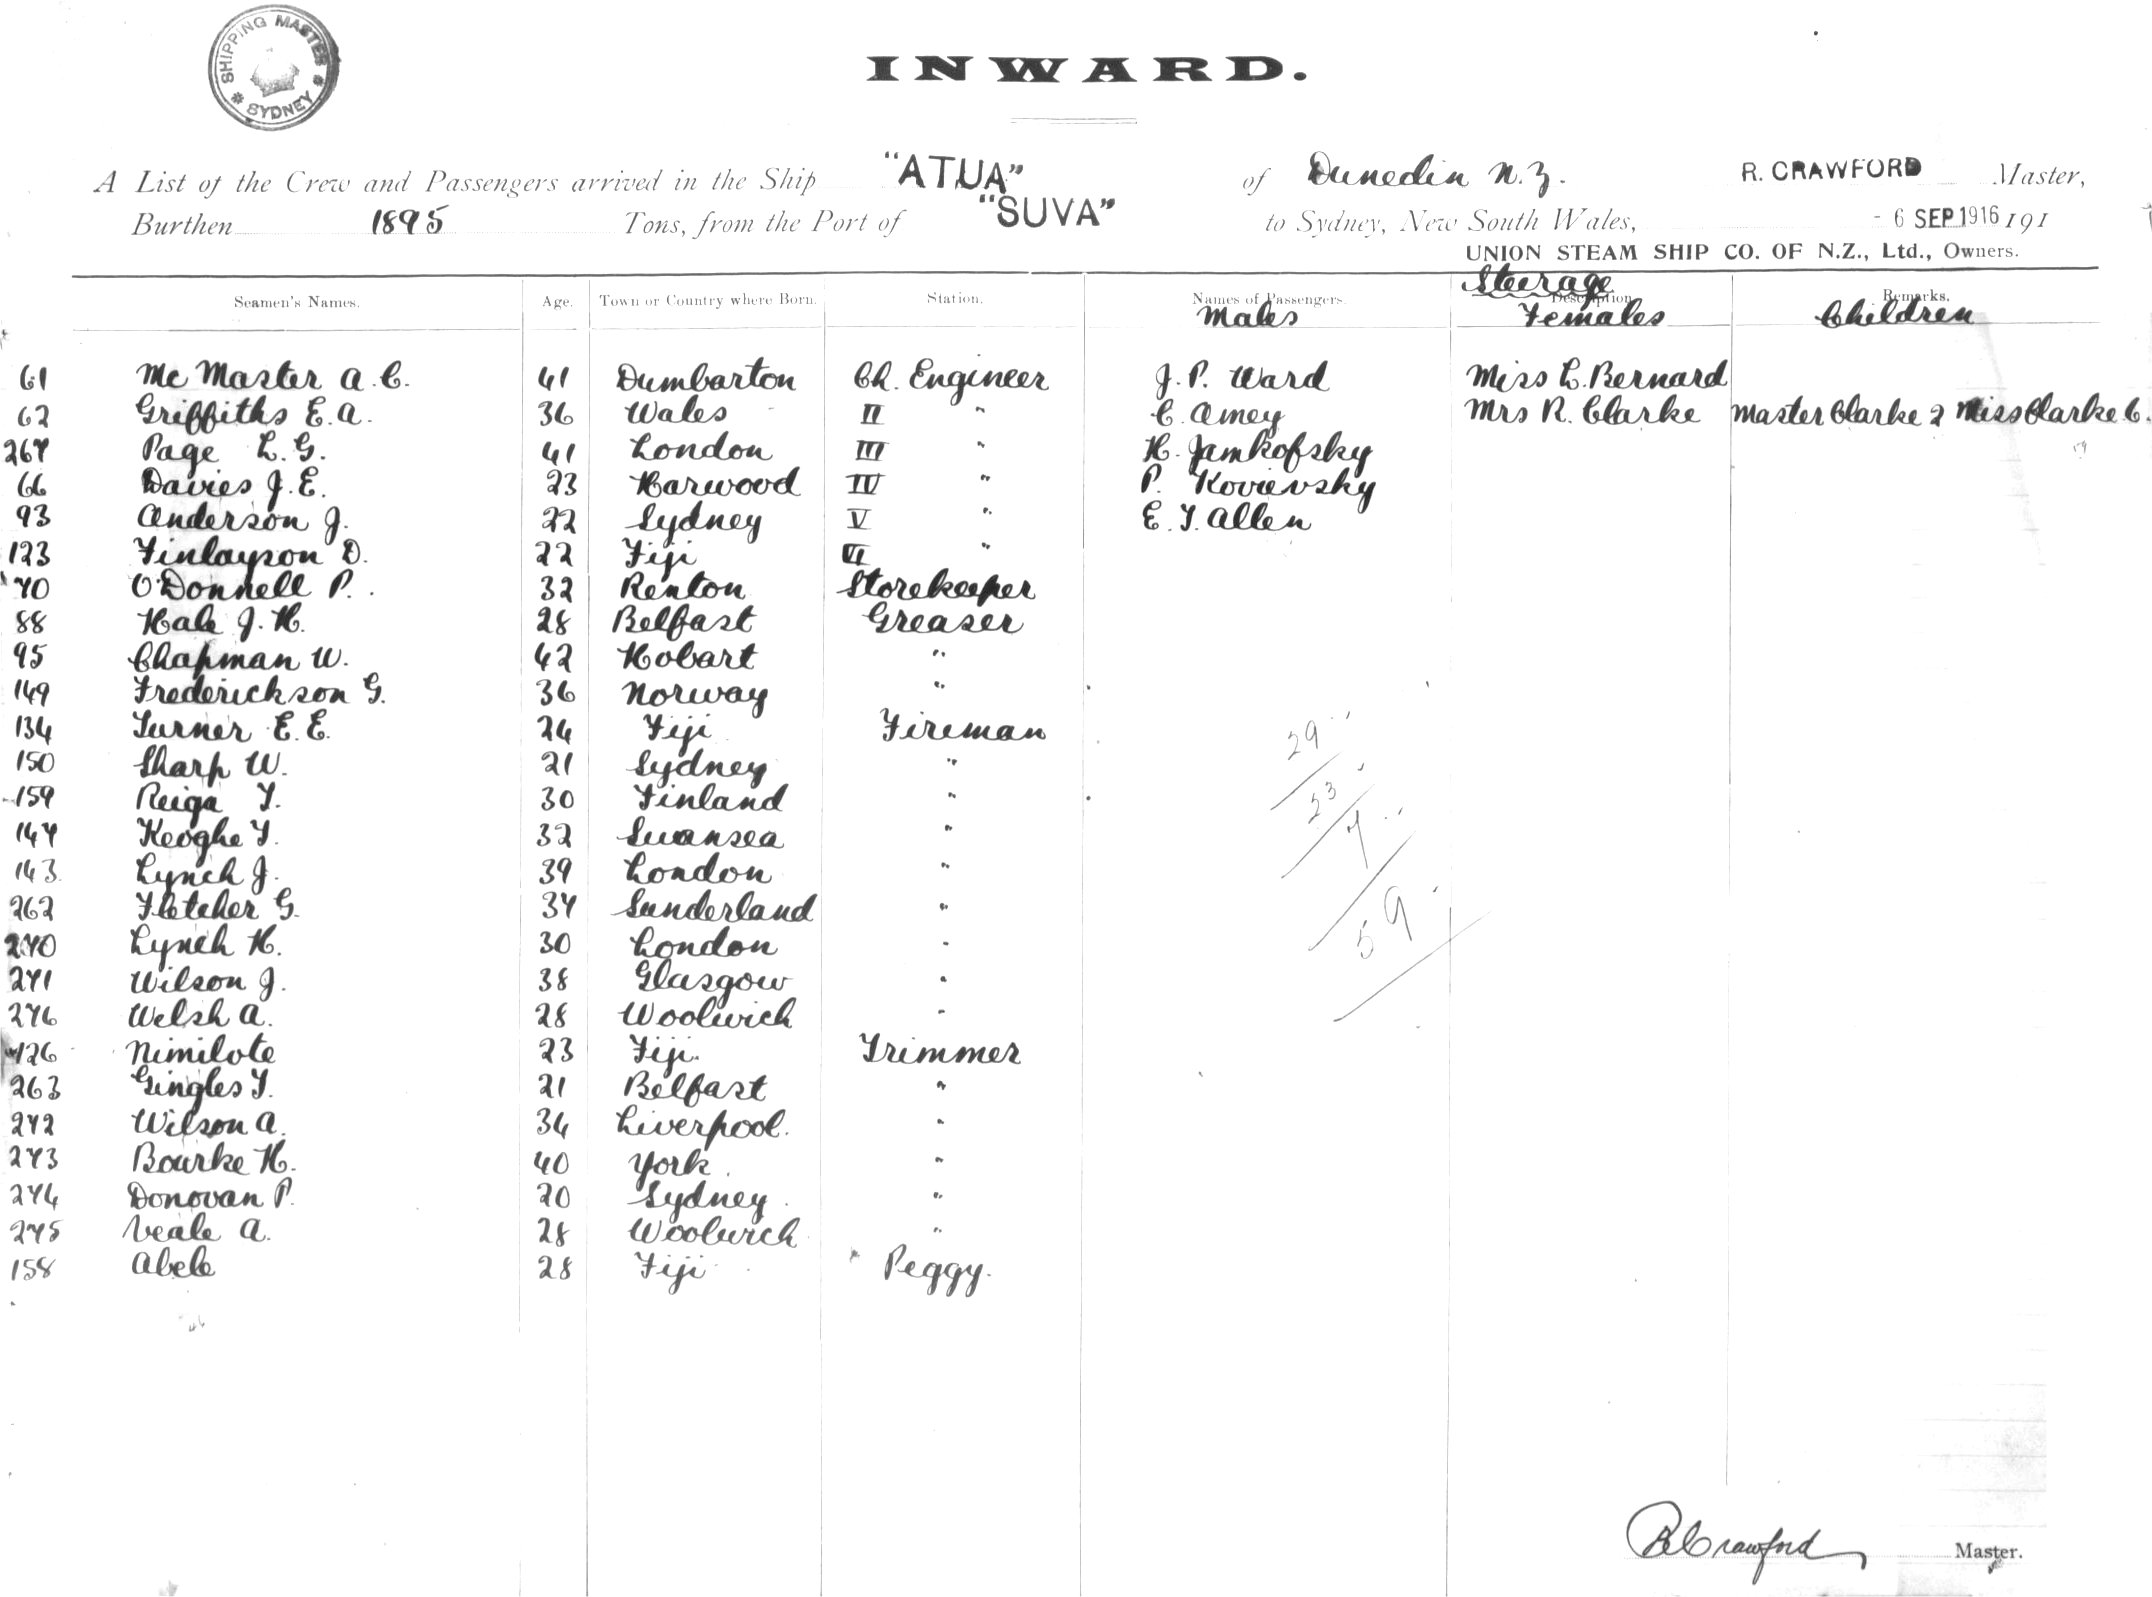 SHIPPING MASTER
SYDNEY
INWARD.
A List of the Crew and Passengers arrived in the Ship "ATUA" of Dunedin N.Z. R. CRAWFORD Master,
Burthen 1895 Tons, from the Port of "SUVA" to Sydney, New South Wales, - 6 SEP 1916 191
UNION STEAM SHIP CO. OF N.Z., Ltd., Owners.
Steerage
Seamen's Names. Age. Town or Country where Born. Station. Names of Passengers. Description Remarks.
Males Females Children
61 Mc Master A.C. 41 Dumbarton Ch. Engineer J. P. Ward Miss L. Bernard
62 Griffiths E.A. 36 Wales II " C. Amey Mrs R. Clarke Master Clarke 2 Miss Clarke 6.
267 Page L.G. 41 London III " H. Jamkofsky 59
66 Davies J.E. 23 Harwood IV " P. Kovievsky
93 Anderson J. 22 Sydney V " E. T. Allen
123 Finlayson D. 22 Fiji VI "
70 O'Donnell P. 32 Renton Storekeeper
88 Hale J.H. 28 Belfast Greaser
95 Chapman W. 42 Hobart "
149 Frederickson G. 36 Norway "
134 Turner E.E. 24 Fiji Fireman
150 Sharp W. 21 Sydney "
159 Reiga T. 30 Finland "
147 Keoghe T. 32 Swansea "
143 Lynch J. 39 London "
262 Fletcher G. 37 Sunderland "
270 Lynch H. 30 London "
271 Wilson J. 38 Glasgow "
276 Welsh A. 28 Woolwich "
126 Nimilote 23 Fiji. Trimmer
263 Gingles T. 21 Belfast "
272 Wilson A. 34 Liverpool. "
273 Bourke H. 40 York. "
274 Donovan P. 20 Sydney. "
275 Veale A. 28 Woolwich "
158 Abele 28 Fiji Peggy.
29
23
7
59
R Crawford Master.